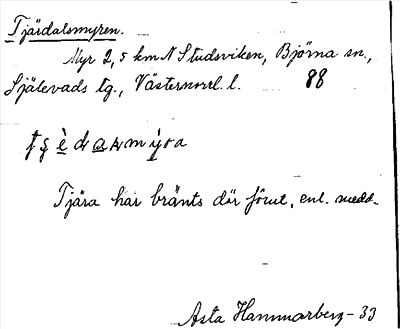 Tjärdalsmyren.
Myr 2,5 km N Studsviken, Björna sn.,
Själevads tg., Västernorrl. l. 88
Tjära har bränts där förut, enl. medd.
Asta Hammarberg - 33